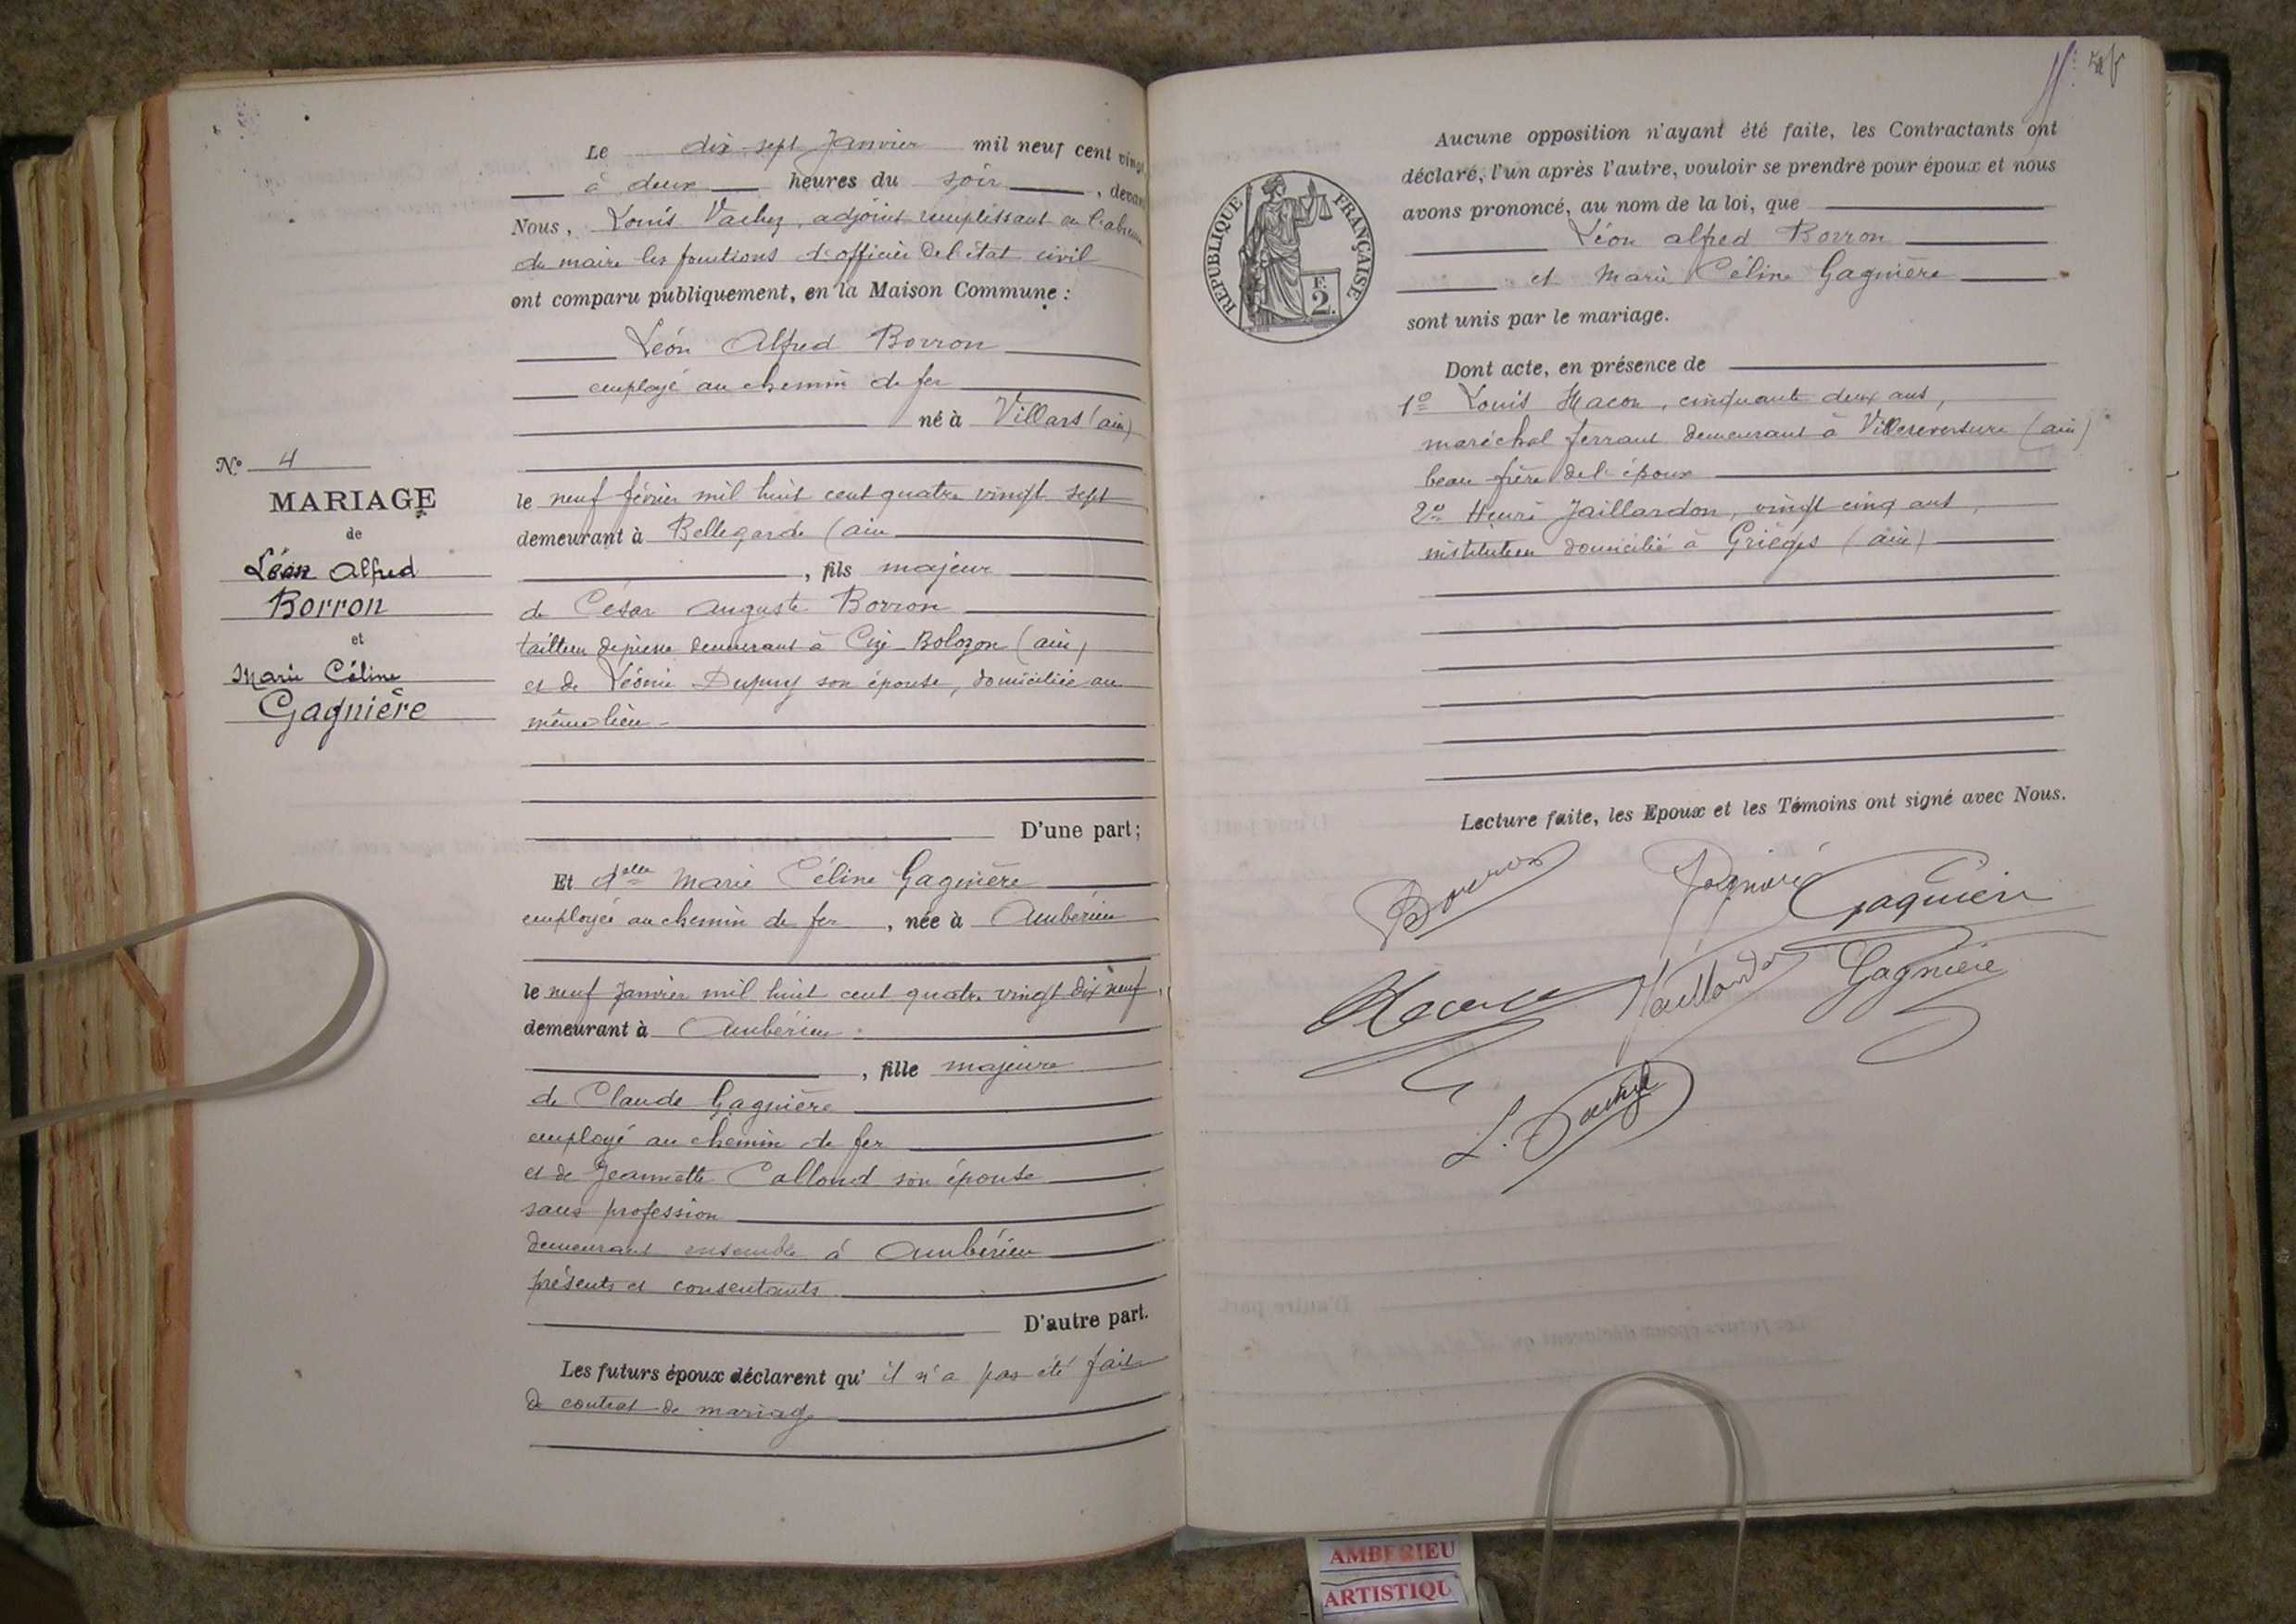 Le dix-sept Janvier mil neuf cent vingt
à deux heures du soir, devant
Nous, Louis Vachez, adjoint remplissant en l'absence
du maire les fonctions d'officier de l'état civil
ont comparu publiquement, en la Maison Commune :
Léon Alfred Borron
employé au chemin de fer
né à Villars (ain)
le neuf février mil huit cent quatre vingt sept
demeurant à Bellegarde (ain
, fils majeur
de César Auguste Borron
tailleur de pierre demeurant à Cize-Bolozon (ain)
et de Léonie Dupuy son épouse, domiciliée au
même lieu
D'une part ;
Et dlle Marie Céline Gagnière
employée au chemin de fer, née à Ambérieu
le neuf Janvier mil huit cent quatre vingt dix neuf,
demeurant à Ambérieu
, fille majeure
de Claude Gagnière
employé au chemin de fer
et de Jeannette Calloud son épouse
sans profession
demeurant ensemble à Ambérieu
présents et consentants
D'autre part.
Les futurs époux déclarent qu'il n'a pas été fait
de contrat de mariage
N° 4
MARIAGE
de
Léon Alfred
Borron
et
Marie Céline
Gagnière
RÉPUBLIQUE FRANÇAISE
F.
2.
Aucune opposition n'ayant été faite, les Contractants ont
déclaré, l'un après l'autre, vouloir se prendre pour époux et nous
avons prononcé, au nom de la loi, que
Léon alfred Borron
et Marie Céline Gagnière
sont unis par le mariage.
Dont acte, en présence de
1° Louis Macon, cinquante deux ans,
maréchal ferrant demeurant à Villereversure (ain)
beau frère de l'époux
2° Henri Jaillardon, vingt cinq ans,
instituteur domicilié à Grièges (ain)
Lecture faite, les Epoux et les Témoins ont signé avec Nous.
Borron
Gagnière
Gagnière
Macon
Jaillardon
Gagnière
L. Vachez
AMBERIEU
ARTISTIQU